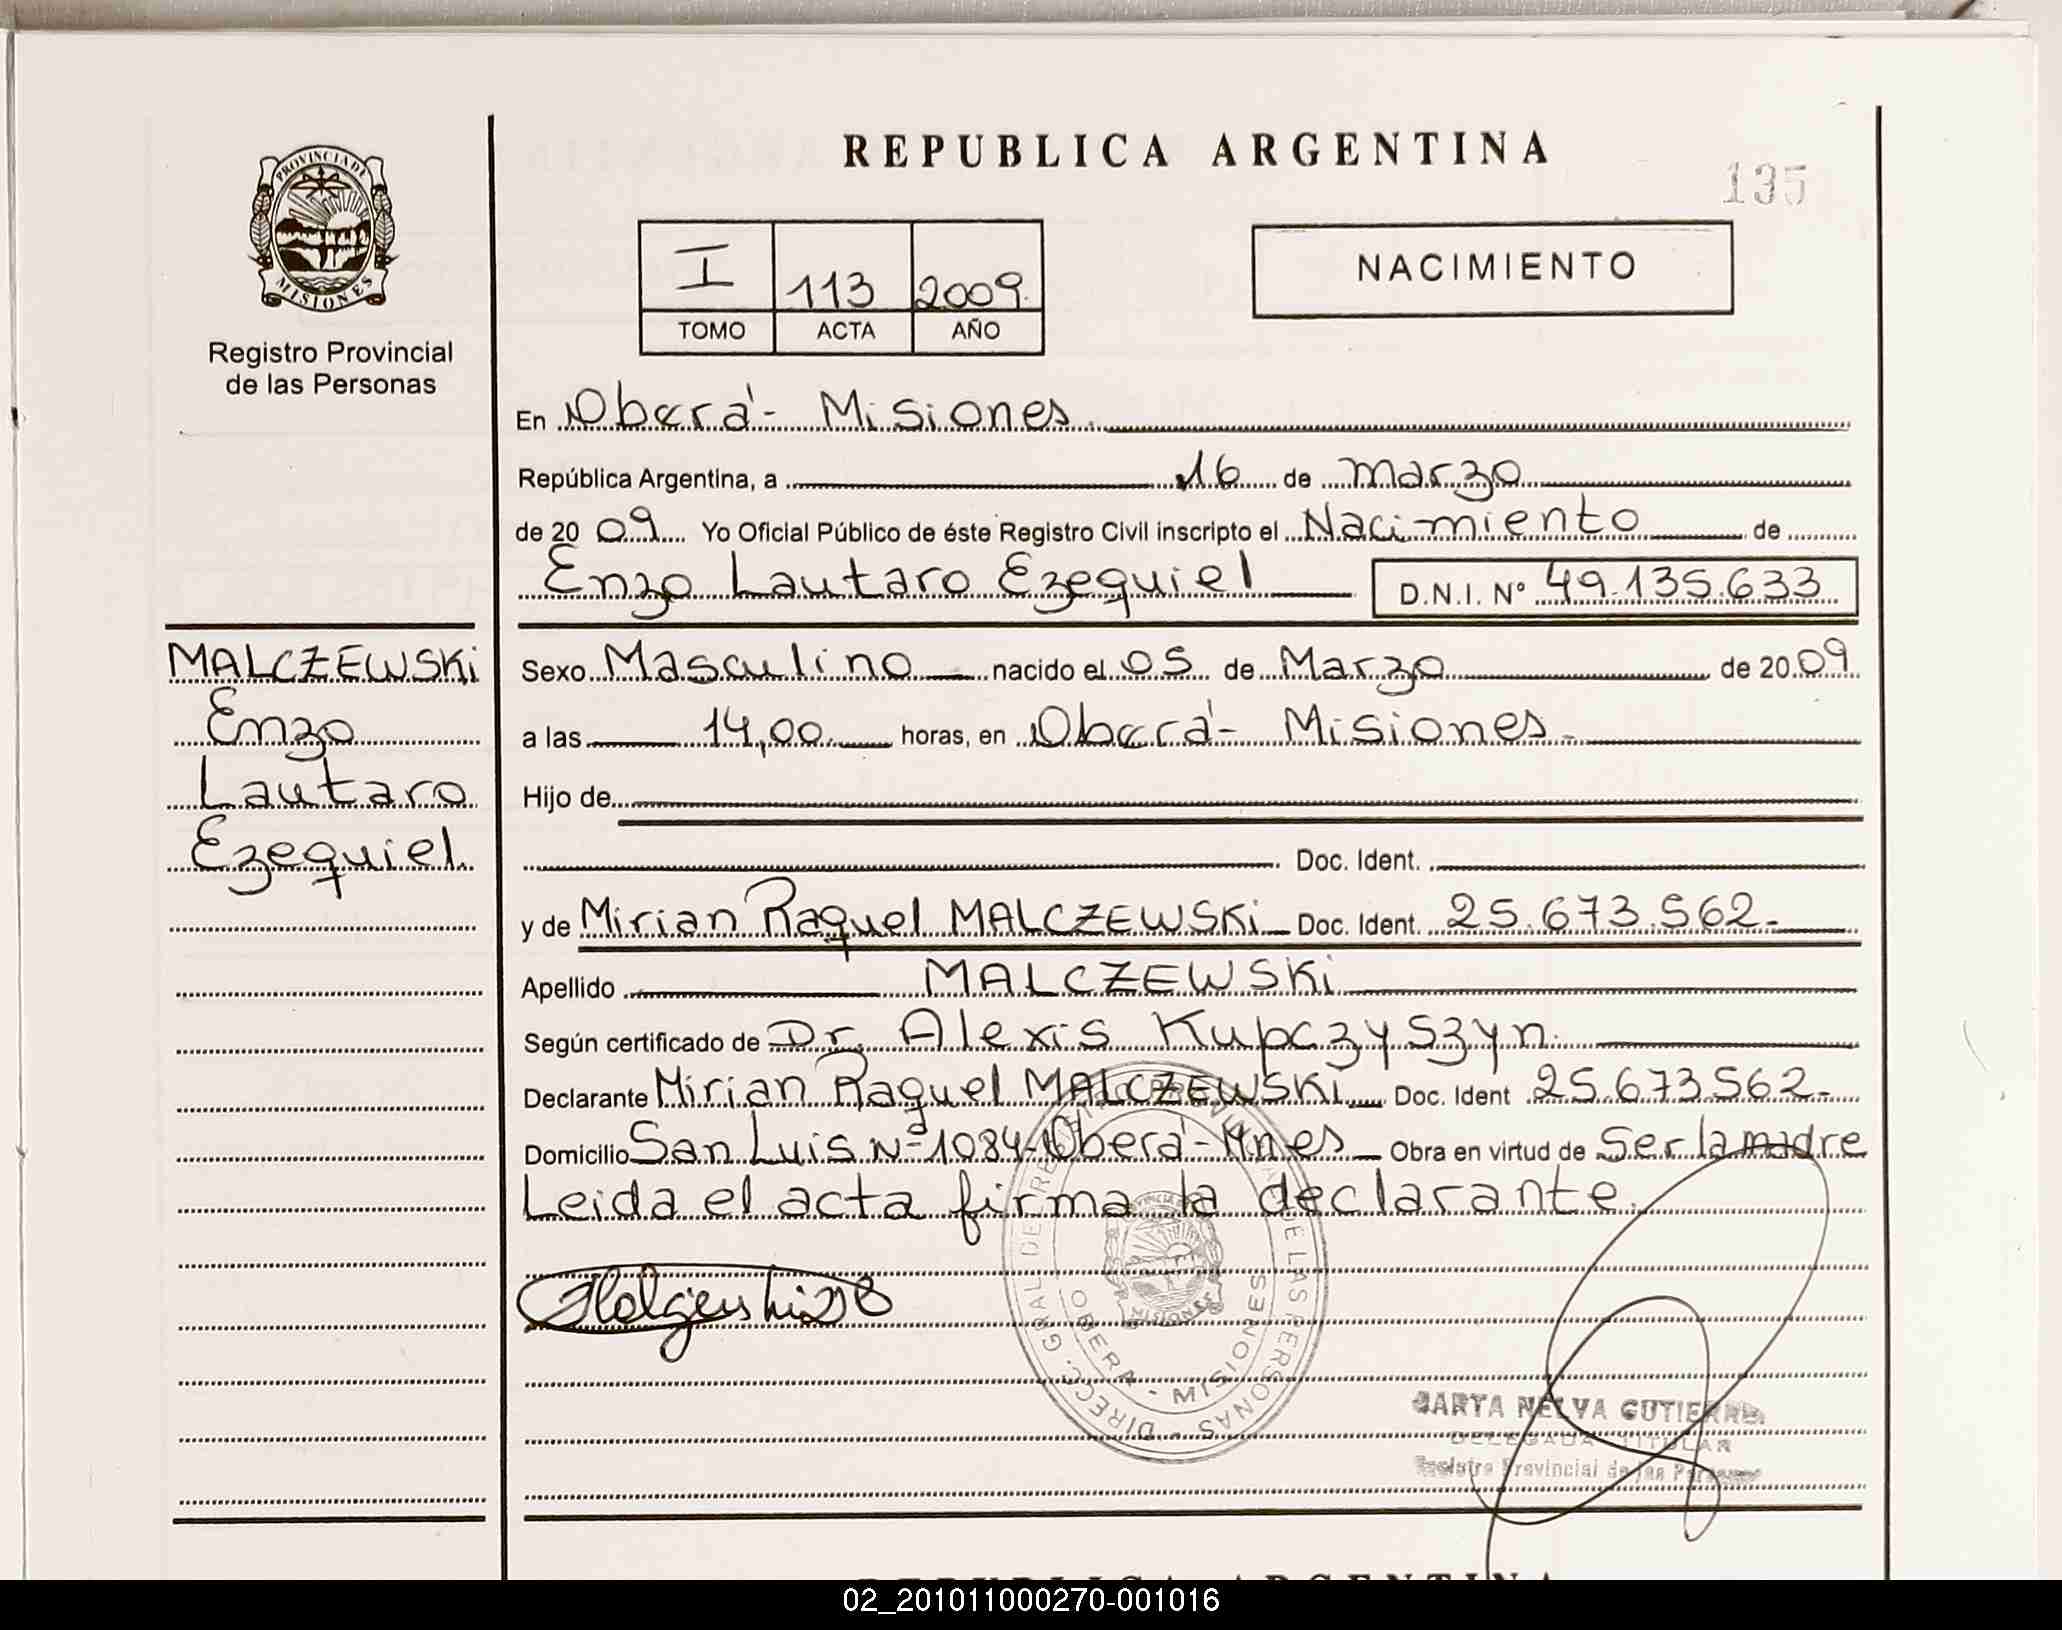 REPUBLICA ARGENTINA
135
PROVINCIA DE
MISIONES
Registro Provincial
de las Personas
I 113 2009
TOMO ACTA AÑO
NACIMIENTO
En Oberá - Misiones
República Argentina, a 16 de Marzo
de 2009 Yo Oficial Público de éste Registro Civil inscripto el Nacimiento de
Enzo Lautaro Ezequiel D.N.I. Nº 49.135.633
MALCZEWSKi
Enzo
Lautaro
Ezequiel
Sexo Masculino nacido el 05 de Marzo de 2009
a las 14,00 horas, en Oberá - Misiones
Hijo de
Doc. Ident.
y de Mirian Raquel MALCZEWSKi Doc. Ident. 25.673.562-
Apellido MALCZEWSKi
Según certificado de Dr. Alexis Kupczyszyn.
Declarante Mirian Raquel MALCZEWSKi Doc. Ident 25.673562-
Domicilio San Luis Nº 1084-Oberá-Mnes Obra en virtud de Ser la madre
Leida el acta firma la declarante.
DIRECC. GRAL DE REGISTRO PROVINCIAL DE LAS PERSONAS
OBERA - MISIONES
MISIONES
NELVA GUTIERREZ
DELEGADA TITULAR
Registro Provincial de las Personas
REPUBLICA ARGENTINA
02_201011000270-001016